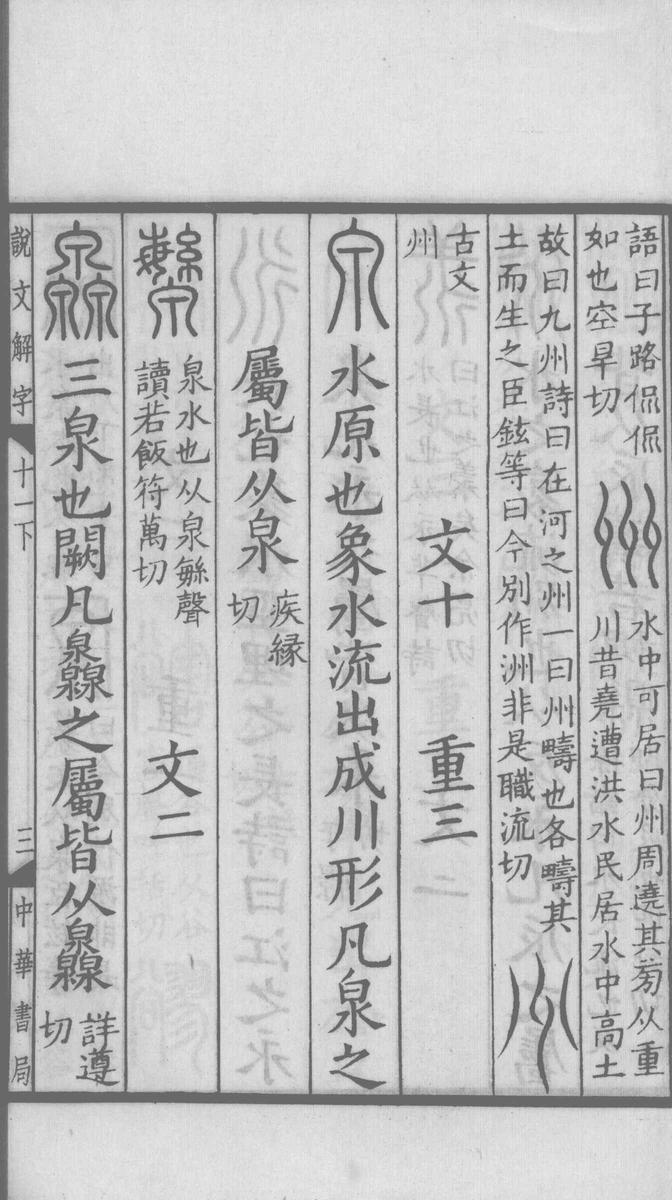 語曰子路侃侃
如也空旱切
州
水中可居曰州周遶其㫄从重
川昔堯遭洪水民居水中高土
故曰九州詩曰在河之州一曰州疇也各疇其
土而生之臣鉉等曰今別作洲非是職流切
州
古文
州
文十 重三
泉 水原也象水流出成川形凡泉之
屬皆从泉
疾緣
切
泉水也从泉緐聲
讀若飯符萬切
文二
灥 三泉也闕凡灥之屬皆从灥
詳遵
切
說文解字 十一下 三 中華書局